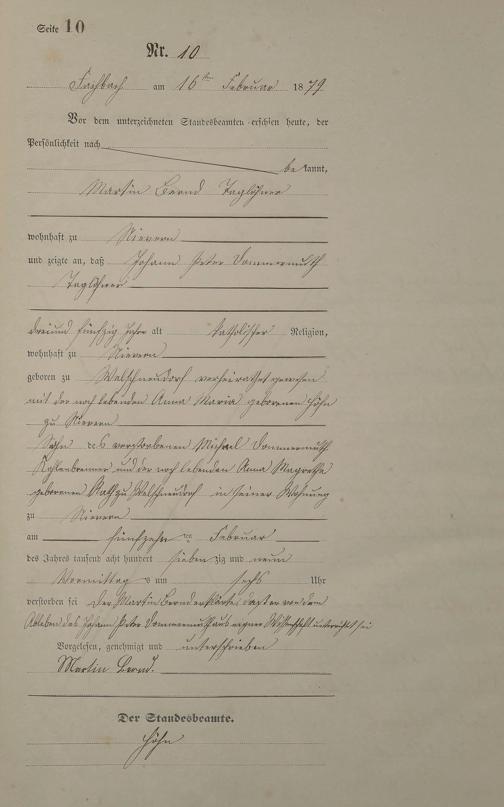 Seite 10
Nr. 10
Fachbach am 16ten Februar 1879
Vor dem unterzeichneten Standesbeamten erschien heute, der
Persönlichkeit nach
be kannt,
Martin Bernd Taglöhner
wohnhaft zu Nievern
und zeigte an, daß Johann Peter Dommermuth
Taglöhner
dreiund fünfzig Jahre alt katholischer Religion,
wohnhaft zu Nievern
geboren zu Welschneudorf verheirathet gewesen
mit der noch lebenden Anna Maria geborenen Höhn
zu Nievern
Sohn des verstorbenen Michael Dommermuth
Kohlenbrenner und der noch lebenden Anna
geborenen zu Welschneudorf in seiner Wohnung
zu Nievern
am fünfzehn ten Februar
des Jahres tausend acht hundert sieben zig und neun
Vormittag s um sechs Uhr
verstorben sei Der Martin Bernd erklärte, daß er von dem
Ableben des Johann Peter Dommermuth aus eigner Wissenschaft unterrichtet sei
Vorgelesen, genehmigt und unterschrieben
Martin Bernd.
Der Standesbeamte.
Höhn